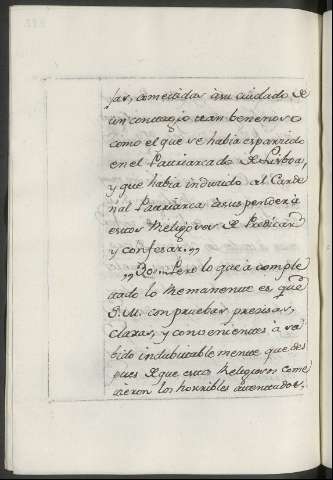 jas, cometidas à su cuidado de
un contagio tan benenoso
como el que se habia esparcido
en el Patriarcado de Lisboa,
y que habia inducido al Carde
nal Patriarca à suspender à
estos Religiosos de Predicar
y confesar.,,
,,30.. Pero lo que à comple
tado lo . es, que
S. M. con pruebas precisas,
claras, y convenientes à sa
bido indubitablemente que des
pues de que estos Religiosos come
tieron los horribles atentados,